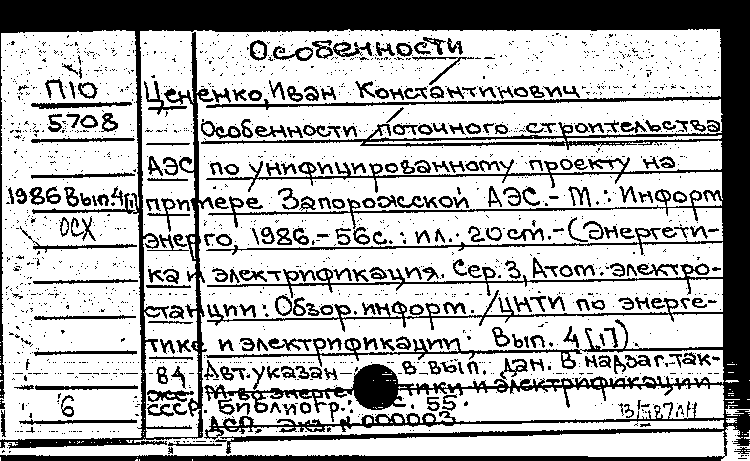 Особенности
П10
Цененко, Иван Константинович
5708
Особенности поточного строительства
АЭС по унифицированному проекту на
1986 Вып.4[1]
примере Запорожской АЭС.- М.: Информ
ОСХ
энерго, 1986.- 56с.: ил.; 20 см.- (Энергети-
ка и электрификация. Сер. 3, Атом. электро-
станции: Обзор. информ. / ЦНТИ по энерге-
тике и электрификации; Вып. 4[1]).
84 Авт. указан в вып. дан. В надзаг. так-
же: М-во энерге тики и электрификации
6
СССР. Библиогр.: с. 55.
ДСП. Экз. N 000003